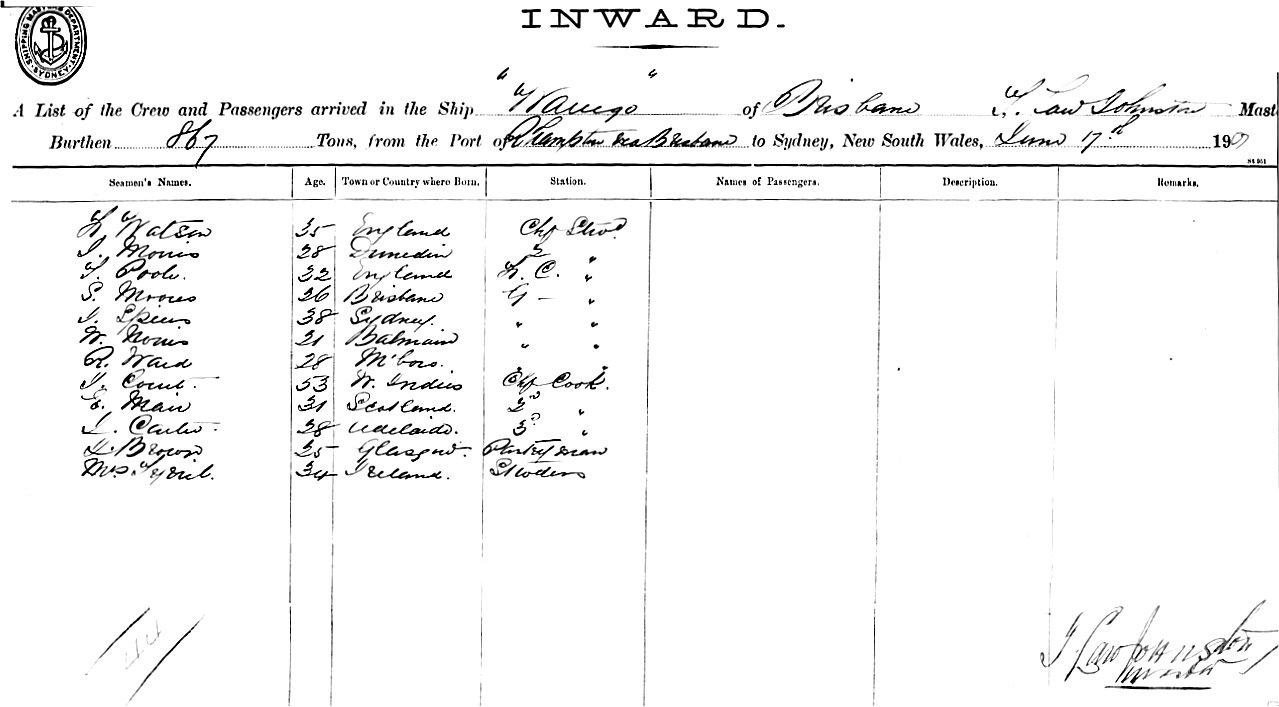 SHIPPING MASTERS DEPARTMENT. SYDNEY.
INWARD.
A List of the Crew and Passengers arrived in the Ship " Warrego " of Brisbane T. Law Johnston Mast
Burthen 867 Tons, from the Port of R'hampton via Brisbane to Sydney, New South Wales, June 17th 190
St 951
Seamen's Names. Age. Town or Country where Born. Station. Names of Passengers. Description. Remarks.
H. Watson 35 England Chf Stwd
J. Morris 28 Dunedin 2 "
T. Poole. 22 England "
S. Moores 26 Brisbane G — "
J. Spiers 38 Sydney. " "
W. Norris 21 Balmain " "
R. Ward 28 M'boro. "
J. 53 W. Indies Chf Cook.
E. Mair 31 Scotland. 2d "
J. Carter. 28 Adelaide. 3d "
Brown 25 Glasgow. Pantryman
Mrs 34 Ireland. Stwdess
44
T Law Johnston
Master